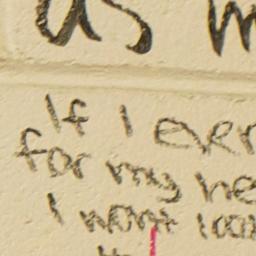 as m
If I ever
for my he
I won't loo